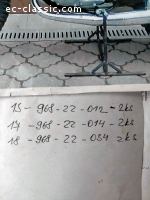 ec-classic.com
15 - 968 - 22 - 012 - 2ks
17 - 968 - 22 - 014 - 2ks
18 - 968 - 22 - 054 - 2ks